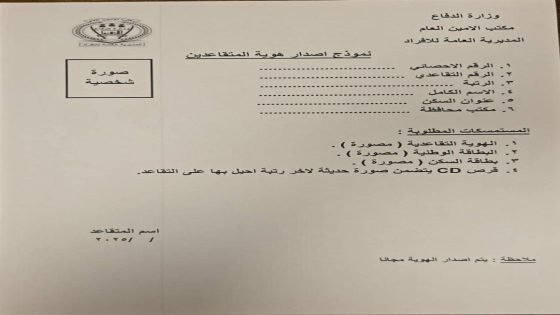 وزارة الدفاع
مكتب الامين العام
المديرية العامة للافراد
نموذج اصدار هوية المتقاعدين
صورة
شخصية
١. الرقم الاحصائي
٢. الرقم التقاعدي
٣. الرتبة
٤. الاسم الكامل
٥. عنوان السكن
٦. مكتب محافظة
المستمسكات المطلوبة :
١. الهوية التقاعدية ( مصورة ) .
٢. البطاقة الوطنية ( مصورة ) .
٣. بطاقة السكن ( مصورة ) .
٤. قرص CD يتضمن صورة حديثة لاخر رتبة احيل بها على التقاعد.
اسم المتقاعد
/ / ٢٠٢٥
ملاحظة : يتم اصدار الهوية مجانا